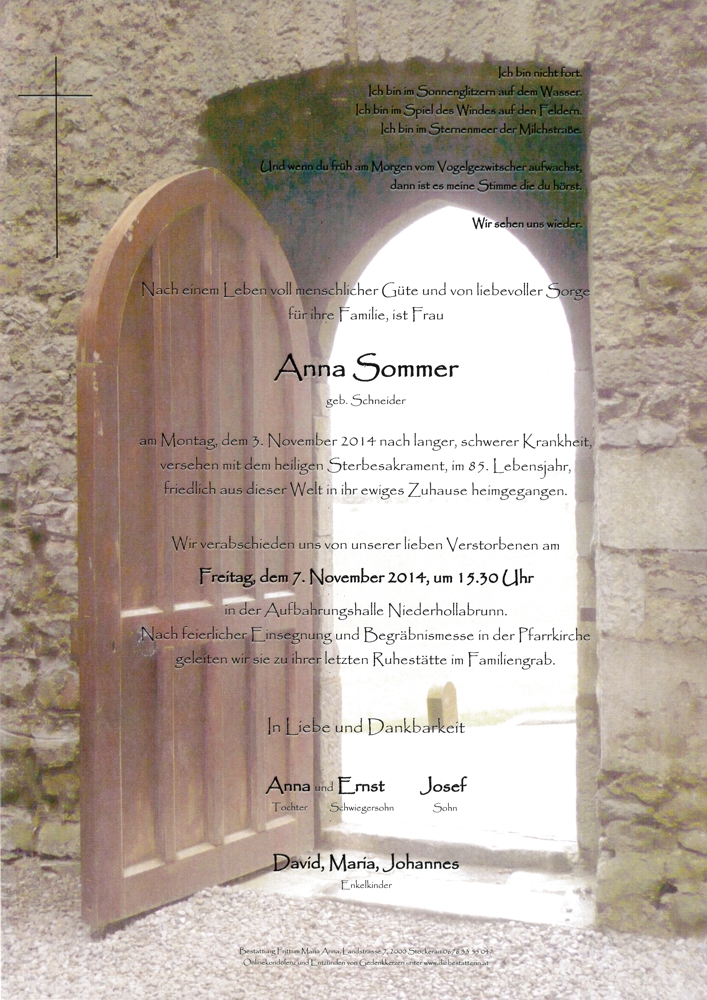 Ich bin nicht fort.
Ich bin im Sonnenglitzern auf dem Wasser.
Ich bin im Spiel des Windes auf den Feldern.
Ich bin im Sternenmeer der Milchstraße.
Und wenn du früh am Morgen vom Vogelgezwitscher aufwachst,
dann ist es meine Stimme die du hörst.
Wir sehen uns wieder.
Nach einem Leben voll menschlicher Güte und von liebevoller Sorge
für ihre Familie, ist Frau
Anna Sommer
geb. Schneider
am Montag, dem 3. November 2014 nach langer, schwerer Krankheit,
versehen mit dem heiligen Sterbesakrament, im 85. Lebensjahr,
friedlich aus dieser Welt in ihr ewiges Zuhause heimgegangen.
Wir verabschieden uns von unserer lieben Verstorbenen am
Freitag, dem 7. November 2014, um 15.30 Uhr
in der Aufbahrungshalle Niederhollabrunn.
Nach feierlicher Einsegnung und Begräbnismesse in der Pfarrkirche
geleiten wir sie zu ihrer letzten Ruhestätte im Familiengrab.
In Liebe und Dankbarkeit
Anna und Ernst Josef
Tochter Schwiegersohn Sohn
David, Maria, Johannes
Enkelkinder
Bestattung Maria Anna, Landstrasse 7, 2000 Stockerau
Onlinekondolenz und Entzünden von Gedenkkerzen unter www.diebestatterin.at